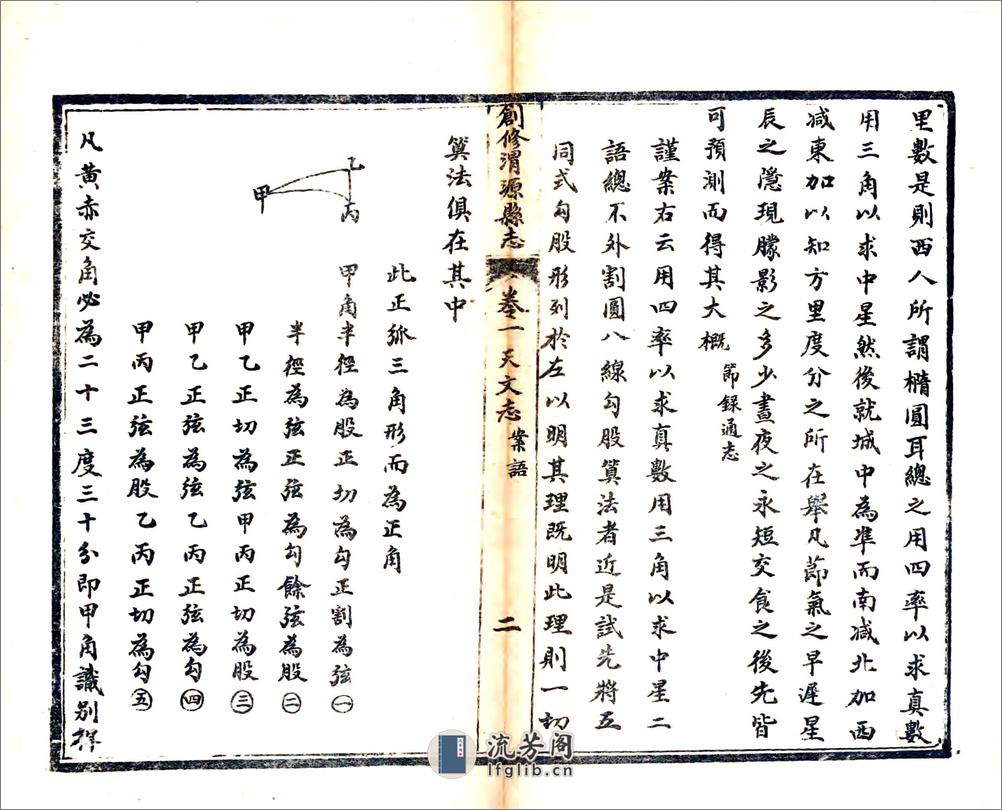 里數是則西人所謂橢圓耳總之用四率以求真數
用三角以求中星然後就城中為準而南減北加西
減東加以知方里度分之所在舉凡節氣之早遲星
辰之隱現朦影之多少晝夜之永短交食之後先皆
可預測而得其大概 節錄通志
謹案右云用四率以求真數用三角以求中星二
語總不外割圓八線勾股算法者近是試先將五
同式勾股形列於左以明其理既明此理則一切
創修渭源縣志 卷一 天文志 案語 二
算法俱在其中
乙
丙
甲
此正弧三角形而為正角
甲角半徑為股正切為勾正割為弦㊀
半徑為弦正弦為勾餘弦為股㊁
甲乙正切為弦甲丙正切為股㊂
甲乙正弦為弦乙丙正弦為勾㊃
甲丙正弦為股乙丙正切為勾㊄
凡黃赤交角必為二十三度三十分即甲角識別詳
流芳阁
lfglib.cn